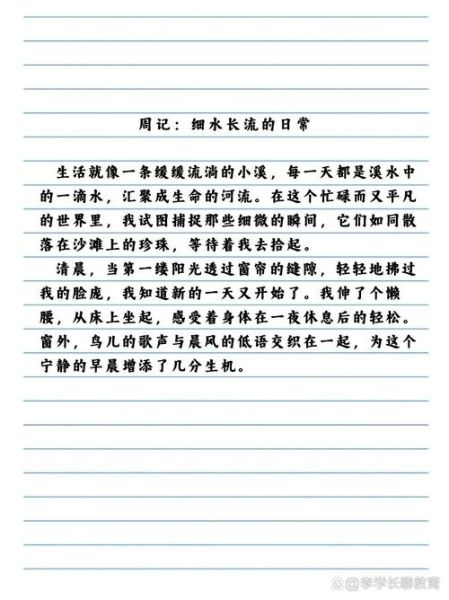 周记：细水长流的日常
生活就像一条缓缓流淌的小溪，每一天都是溪水中
的一滴水，汇聚成生命的河流。在这个忙碌而又平凡
的世界里，我试图捕捉那些细微的瞬间，它们如同散
落在沙滩上的珍珠，等待着我去拾起。
清晨，当第一缕阳光透过窗帘的缝隙，轻轻地拂过
我的脸庞，我知道新的一天又开始了。我伸了个懒
腰，从床上坐起，感受着身体在一夜休息后的轻松。
窗外，鸟儿的歌声与晨风的低语交织在一起，为这个
宁静的早晨增添了几分生机。
@李学长聊教育